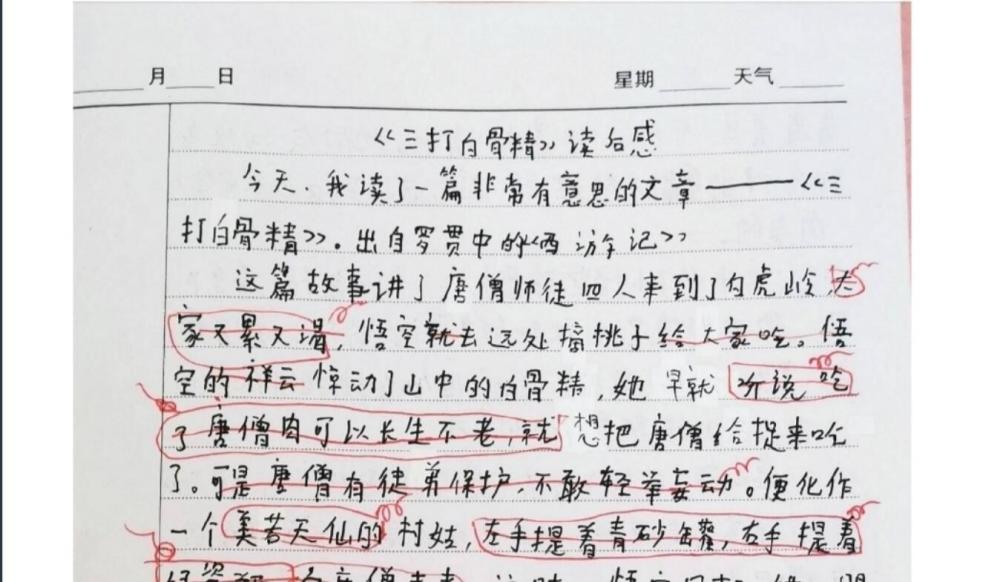 月 日 星期 天气
《三打白骨精》读后感
今天.我读了一篇非常有意思的文章——《三
打白骨精》。出自罗贯中的《西游记》
这篇故事讲了唐僧师徒四人来到了白虎岭,大
家又累又渴,悟空就去远处摘桃子给大家吃。悟
空的祥云惊动了山中的白骨精,她早就听说吃
了唐僧肉可以长生不老,就想把唐僧给捉来吃
了。可是唐僧有徒弟保护,不敢轻举妄动。便化作
一个美若天仙的村姑,左手提着青砂罐,右手提着